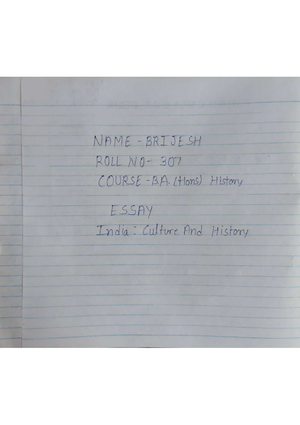 NAME - BRIJESH
ROLL NO- 307
COURSE-B.A. (Hons) History
ESSAY
India : Culture And History